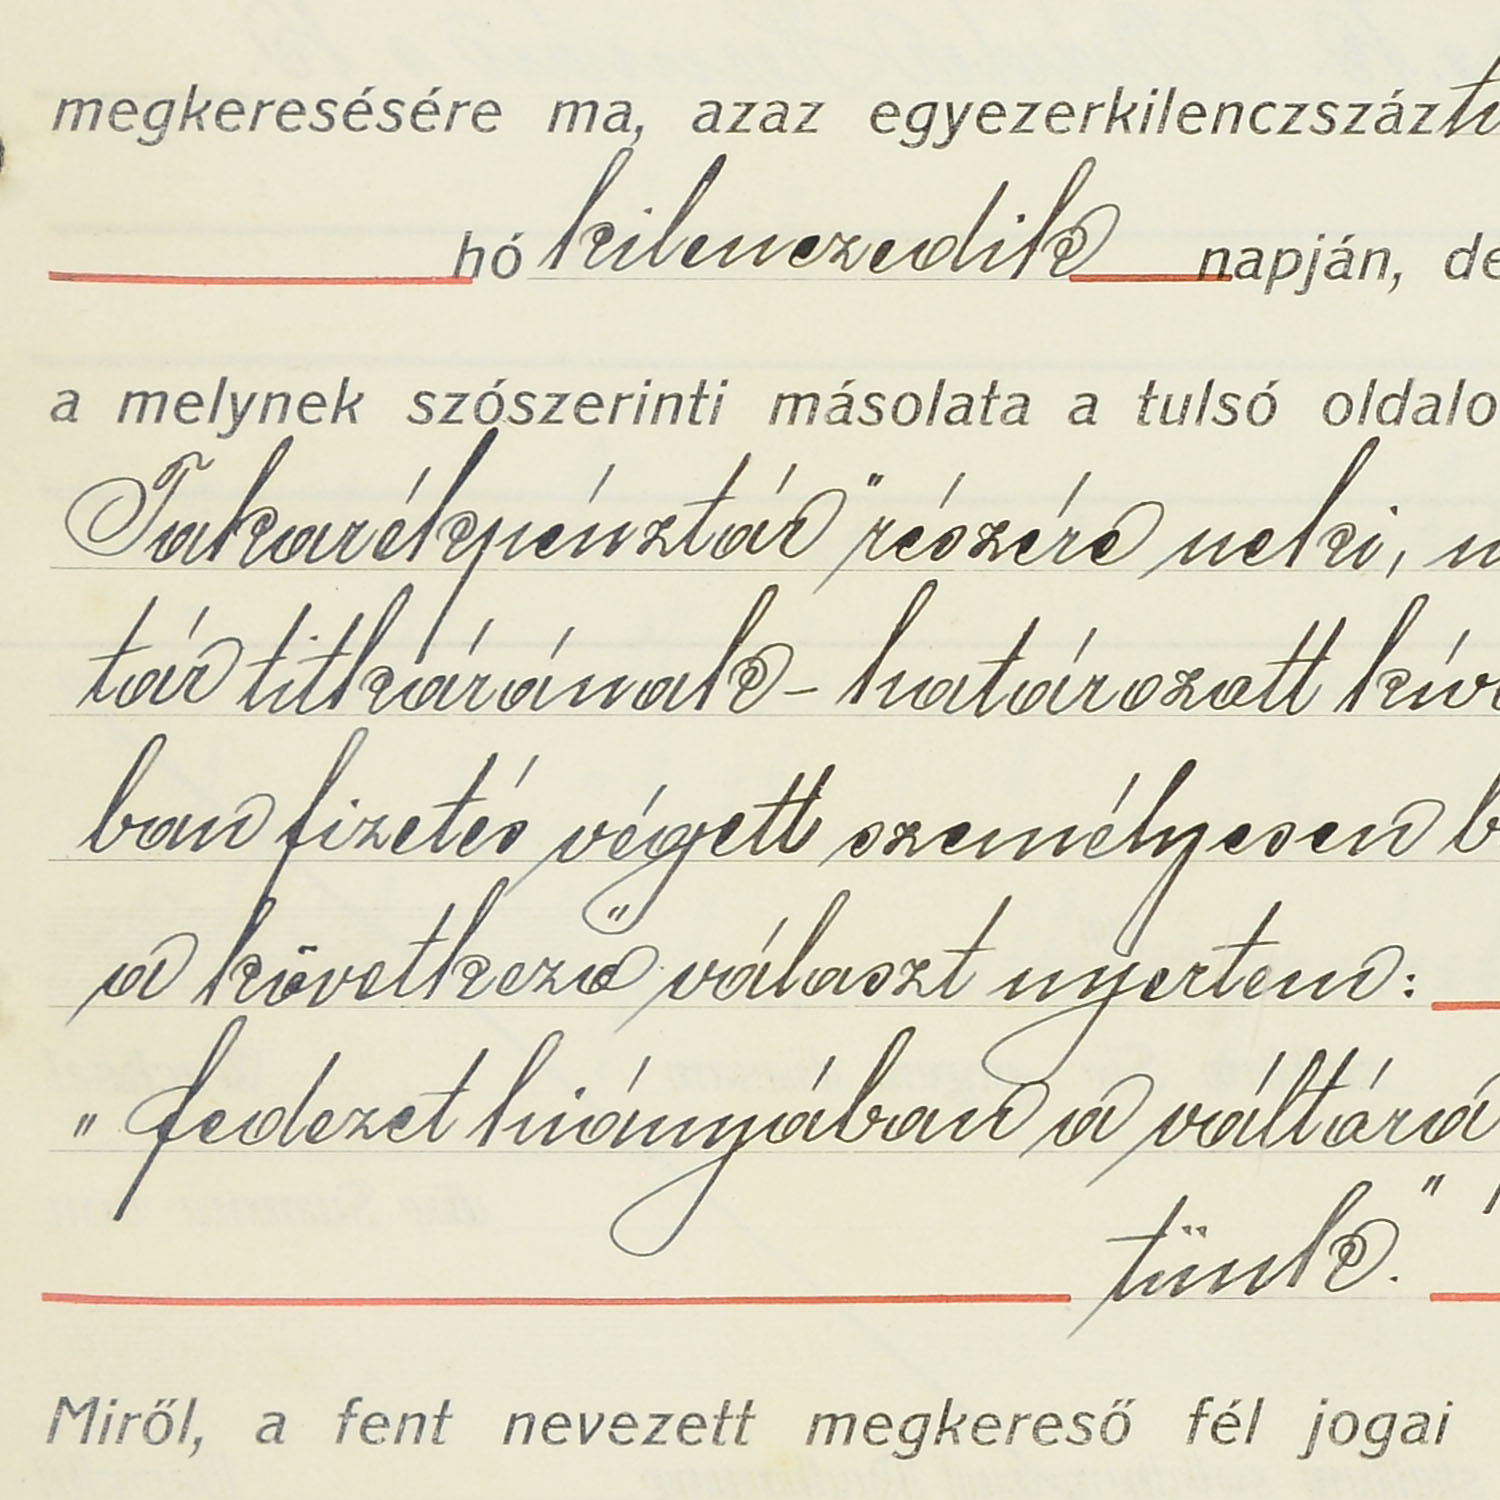 megkeresésére ma, azaz egyezerkilenczszáz
hó kilenczedik napján, de
a melynek szószerinti másolata a tulsó oldalo
Takarékpénztár" részére neki,
tár titkárának - határozott kív
ban fizetés végett személyesen b
a következő választ nyertem:
"fedezet hiányában a váltára
tünk."
Miről, a fent nevezett megkereső fél jogai